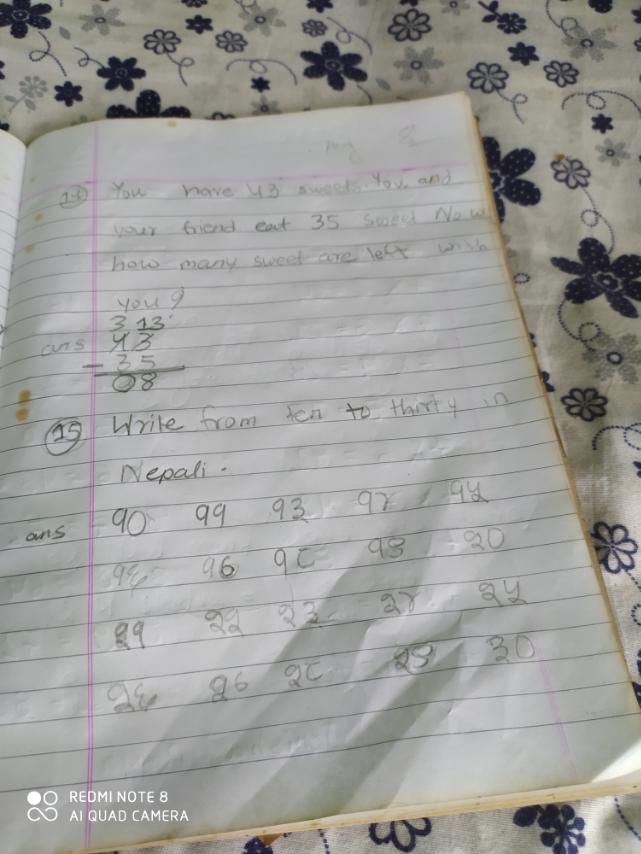 14) You have 43 sweets. You and
your friend eat 35 sweet Now
how many sweet are left with
you ?
3 13
ans 43
- 35
08
15) Write from ten to thirty in
Nepali.
ans १० ११ १३ १४ १५
१६ १७ १८ १९ २०
२१ २२ २३ २४ २५
२६ २७ २८ २९ ३०
REDMI NOTE 8
AI QUAD CAMERA